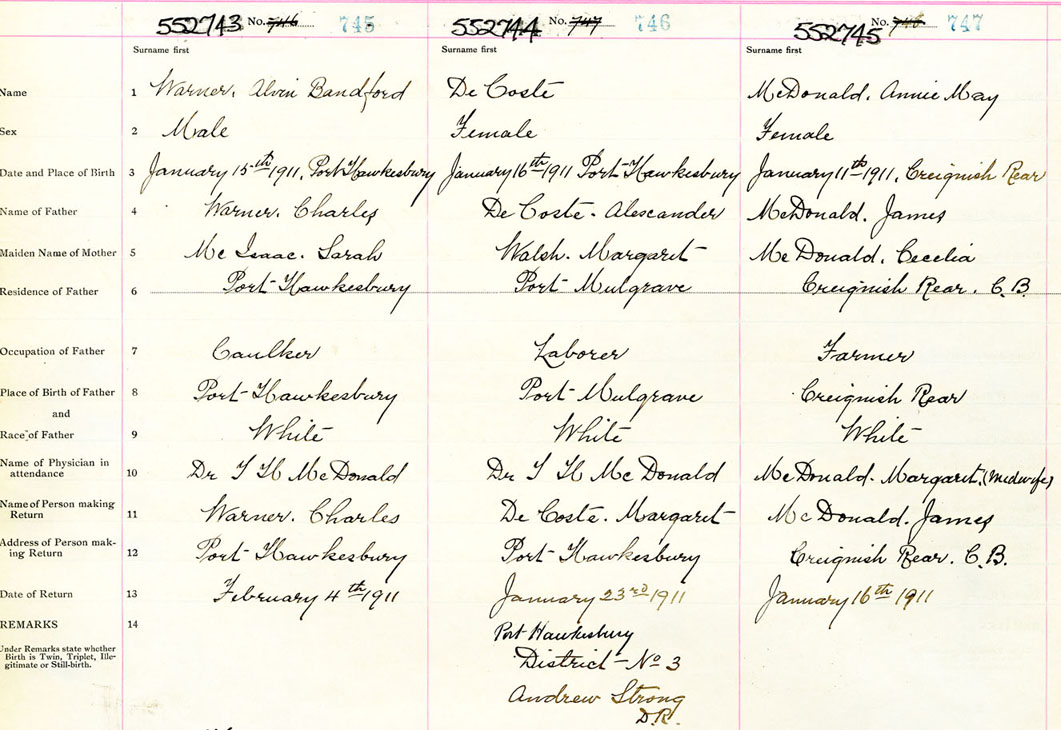 552743 No. 746 745 552744 No. 747 746 552745 No. 748 747
Surname first Surname first Surname first
Name 1 Warner. Alvin Bandford De Coste McDonald. Annie May
Sex 2 Male Female Female
Date and Place of Birth 3 January 15th 1911, Port Hawkesbury January 16th 1911 Port Hawkesbury January 11th 1911. Creignish Rear
Name of Father 4 Warner. Charles De Coste. Alescander McDonald. James
Maiden Name of Mother 5 Mc Isaac. Sarah Walsh. Margaret McDonald. Cecelia
Residence of Father 6 Port Hawkesbury Port Mulgrave Creignish Rear. C.B.
Occupation of Father 7 Caulker Laborer Farmer
Place of Birth of Father 8 Port Hawkesbury Port Mulgrave Creignish Rear
and
Race of Father 9 White White White
Name of Physician in
attendance 10 Dr H McDonald Dr H McDonald McDonald. Margaret. (Midwife)
Name of Person making
Return 11 Warner. Charles De Coste. Margaret McDonald. James
Address of Person mak-
ing Return 12 Port Hawkesbury Port Hawkesbury Creignish Rear. C.B.
Date of Return 13 February 4th 1911 January 23rd 1911 January 16th 1911
REMARKS 14 Port Hawkesbury
Under Remarks state whether
Birth is Twin, Triplet, Ille-
gitimate or Still-birth.
District - No 3
Andrew Strong
D.R.